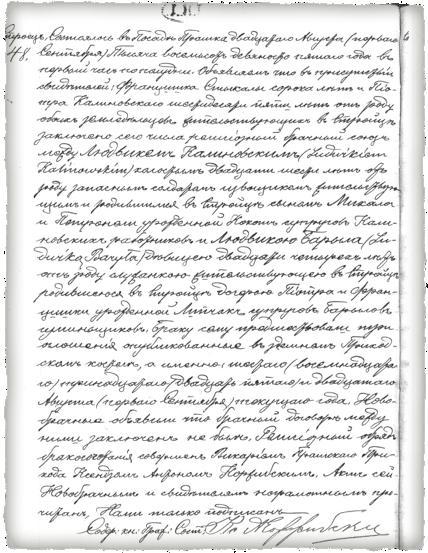 48. Состоялось въ Посадѣ двадцатаго Августа (перваго
Сентября) Тысяча восемьсотъ девяносто пятаго года въ
первый часъ пополудни. Объявляемъ что въ присутствіи
свидѣтелей: Францишка сорока лѣтъ и Пі-
отра Калиновскаго шестидесяти пяти лѣтъ отъ роду
обоихъ жительствующихъ въ
заключенъ сего числа религіозный брачный союзъ
между Людвикомъ Калиновскимъ (Ludwikiem
Kalinowskim) холостымъ двадцати шести лѣтъ отъ
роду запаснымъ солдатомъ жительствую-
щимъ и родившимся въ сыномъ Михала
и Петронели урожденной супруговъ Кали-
новскихъ работниковъ и Людвикою Барыла (Lu-
dwika Baryła) дѣвицею двадцати четырехъ лѣтъ
отъ роду служанкою жительствующею въ
родившеюся въ дочерью Піотра и Фран-
цишки урожденной супруговъ Барыловъ
Браку сему предшествовали три
оглашенія опубликованные въ здѣшнемъ Приход-
скомъ костелѣ, а именно: шестаго (восемнадцата-
го) тринадцатаго (двадцать пятаго) и двадцатаго
Августа (перваго Сентября) текущаго года. Ново-
брачные объявили что брачный договоръ между
ними заключенъ не былъ. Религіозный обрядъ
бракосочетанія совершенъ Викаріемъ При-
хода Ксендзомъ Антономъ Актъ сей
Новобрачнымъ и свидѣтелямъ неграмотнымъ про-
читанъ, Нами только подписанъ
Содер: кн: Граж: Сост: